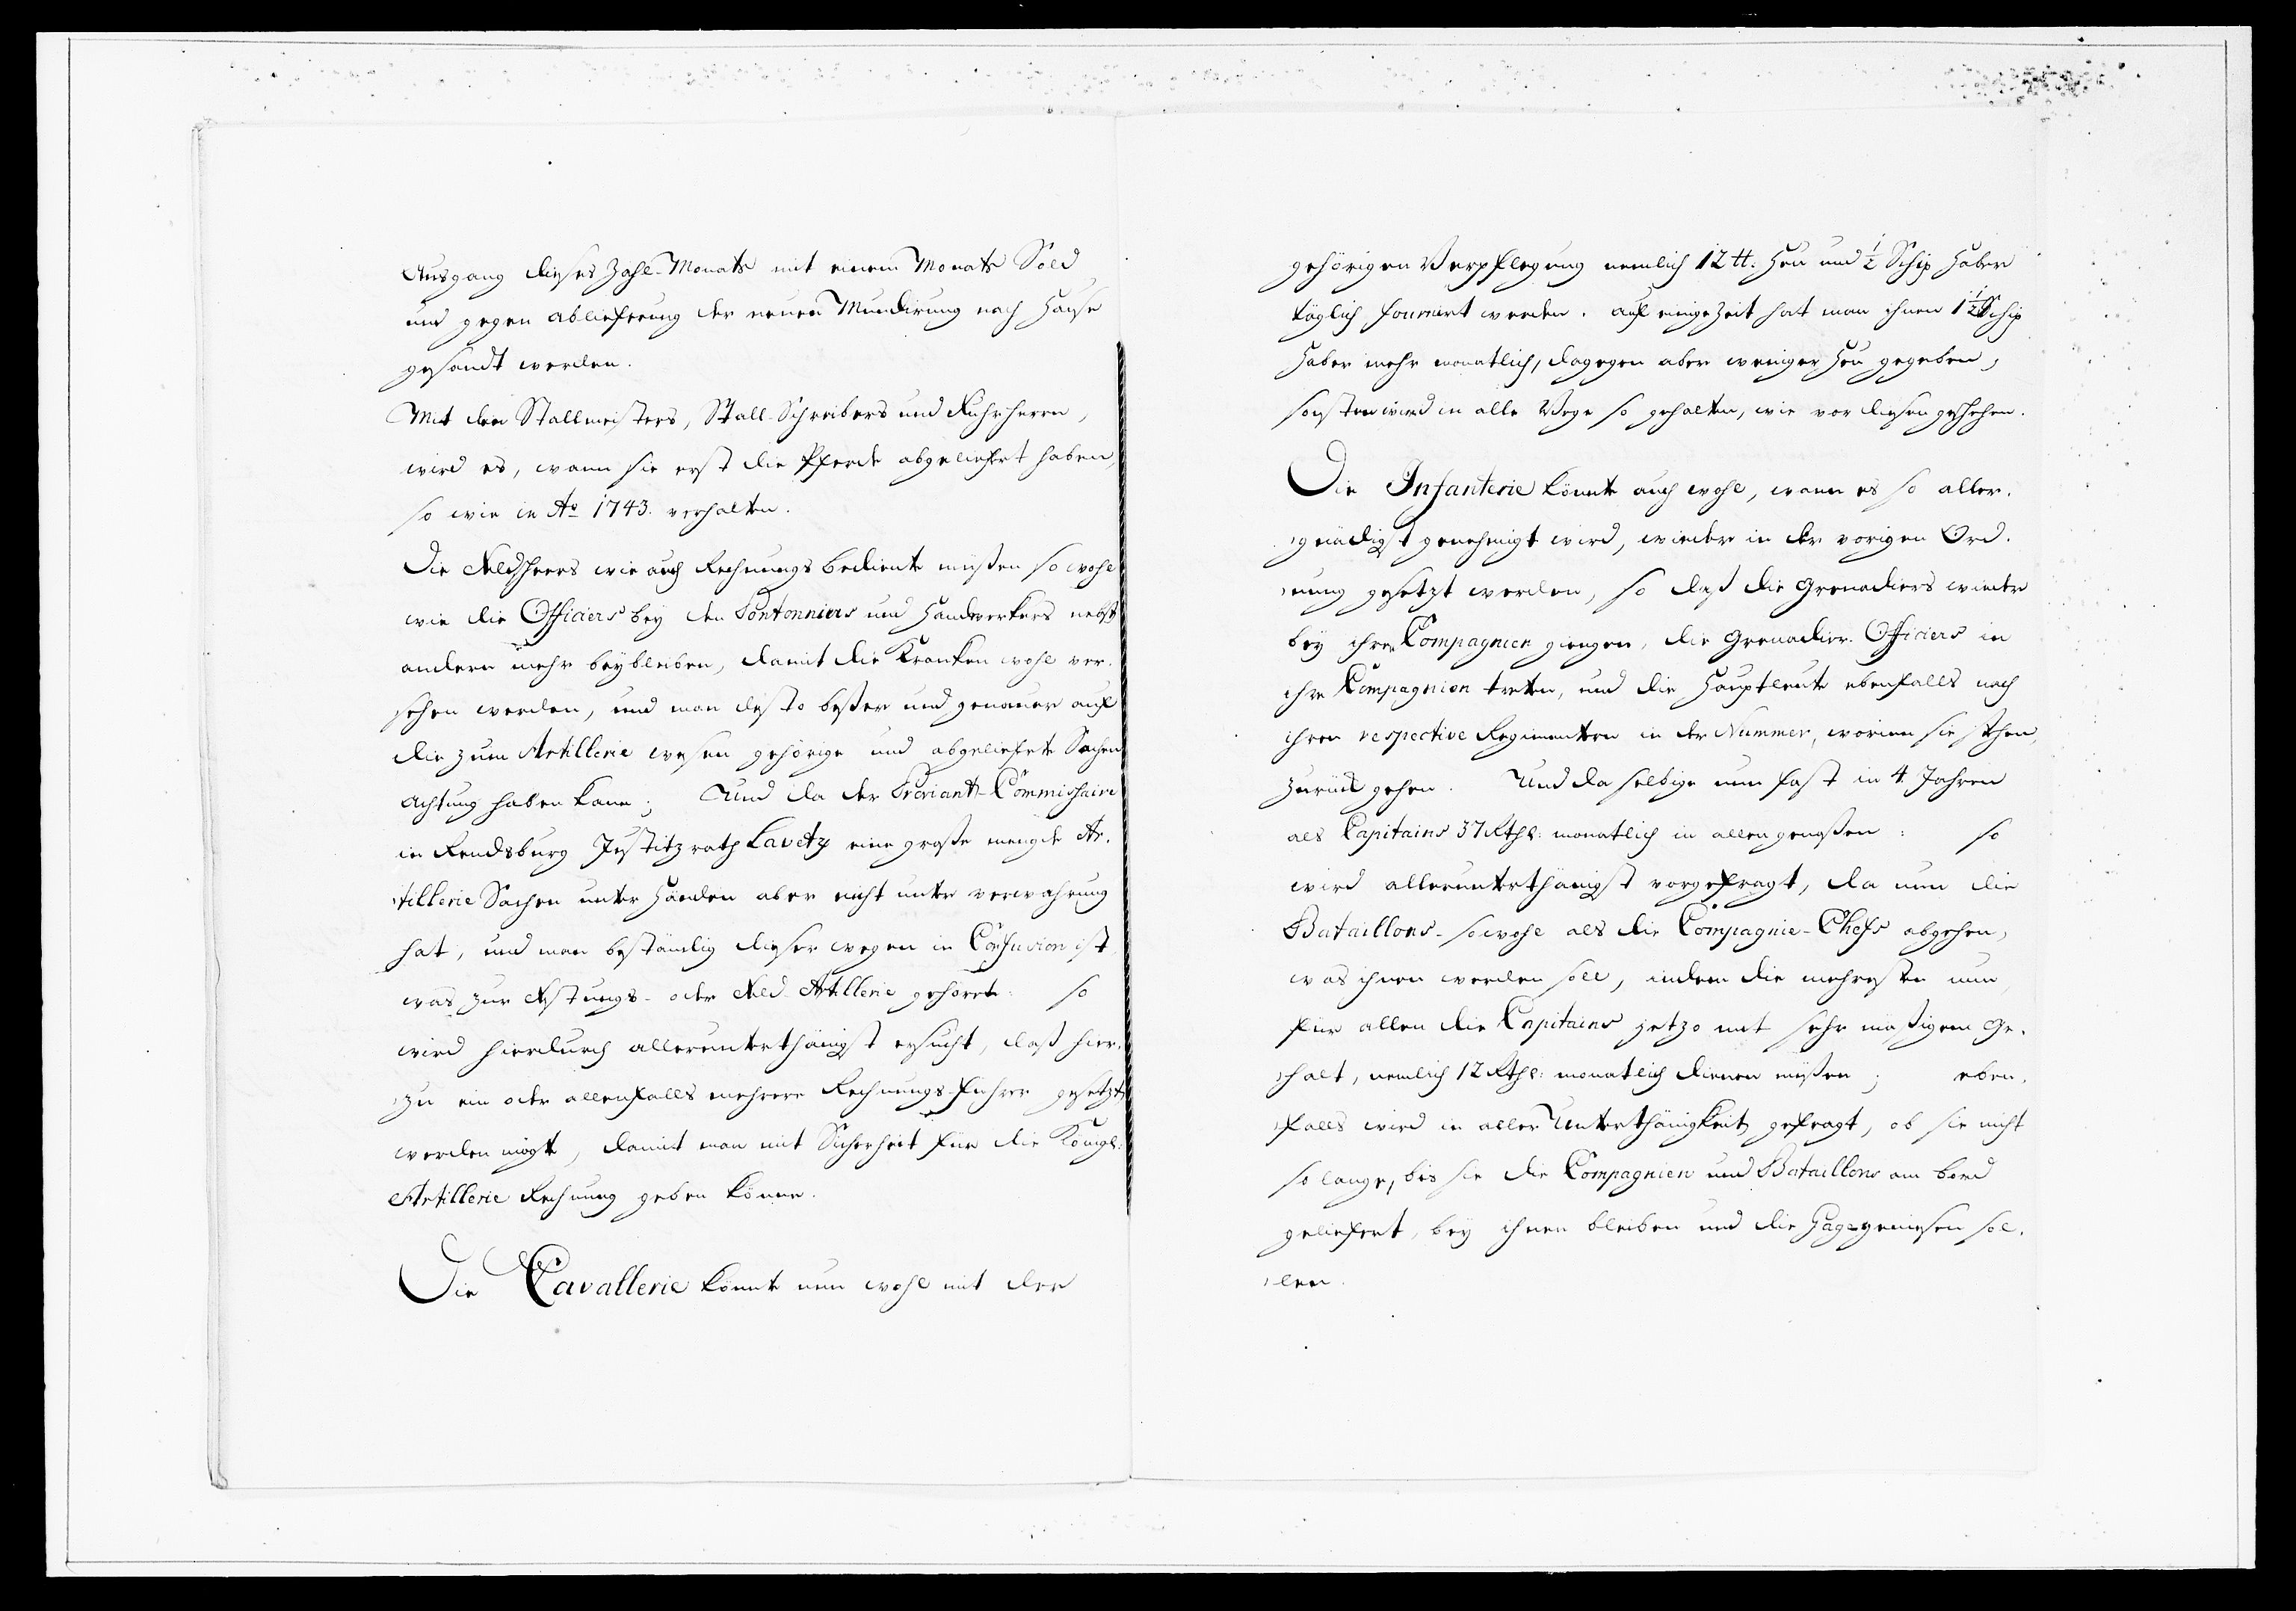 Ausgang dieses Zahl-Monats mit einem Monats Sold
und gegen ablieferung der neuen Mundirung nach Hause
gesandt werden.
Mit den Stallmeisters, Stall-Schreibers und Fuhrherrn,
wird es, wann sie erst die Pferde abgeliefert haben,
so wie in Ao 1743. verhalten.
Die Feldscheers wie auch Rechnungs bediente müßen so wohl
wie die Officiers bey den Pontonniers und Handwerkers nebst
andern mehr beybleiben, damit die Kranken wohl ver-
sehen werden, und man desto beßer und genauer auf
die zum Artillerie wesen gehörige und abgelieferte Sachen
Achtung haben kann; Und da der Proviant-Commissaire
in Rendsburg Justitzrath Lavetz eine große mengde Ar-
tillerie Sachen unter Händen aber nicht unter verwahrung
hat, und man beständig dieser wegen in Confusion ist,
was zur Festungs- oder Feld-Artillerie gehöret: so
wird hierdurch allerunterthänigst ersucht, daß hier-
zu ein oder allenfalls mehrere Rechnungs-führer gesetzt
werden mögte, damit man mit Sicherheit für die Königl:
Artillerie Rechnung geben könne.
Die Cavallerie könnte nun wohl mit der
gehörigen Verpflegung nemlich 12 tt: Heu und 1/2 Schip Haber
täglich fourniert werden. auf einige Zeit hat man ihnen 1 1/2 Schip
Haber mehr monatlich, dagegen aber weniger Heu gegeben,
sonsten wird in alle Wege so gehalten, wie vor diesen geschehen.
Die Infanterie könnte auch wohl, wann es so aller-
gnädigst genehmigt wird, wieder in der vorigen Ord-
nung gesetzt werden, so daß die Grenadiers wieder
bey ihren Compagnien giengen, die Grenadier-Officiers in
ihre Compagnien treten, und die Hauptleute ebenfalls nach
ihren respective Regimentern in der Nummer, worinn sie stehen,
zurück gehen. Und da selbige nun fast in 4 Jahren
als Capitains 37 Rthl: monatlich in allen genoßen: so
wird allerunterthänigst vorgefragt, da nun die
Bataillons- sowohl als die Compagnie-Chefs abgehen,
was ihnen werden soll, indem die mehresten nun
für allen die Capitains jetzo mit sehr mäßigem Ge-
halt, nemlich 12 Rthl: monatlich dienen müßen; eben-
falls wird in aller Unterthänigkeit gefragt, ob sie nicht
so lange, bis sie die Compagnien und Bataillons am bord
geliefert, bey ihnen bleiben und die Gage genießen sol-
len.